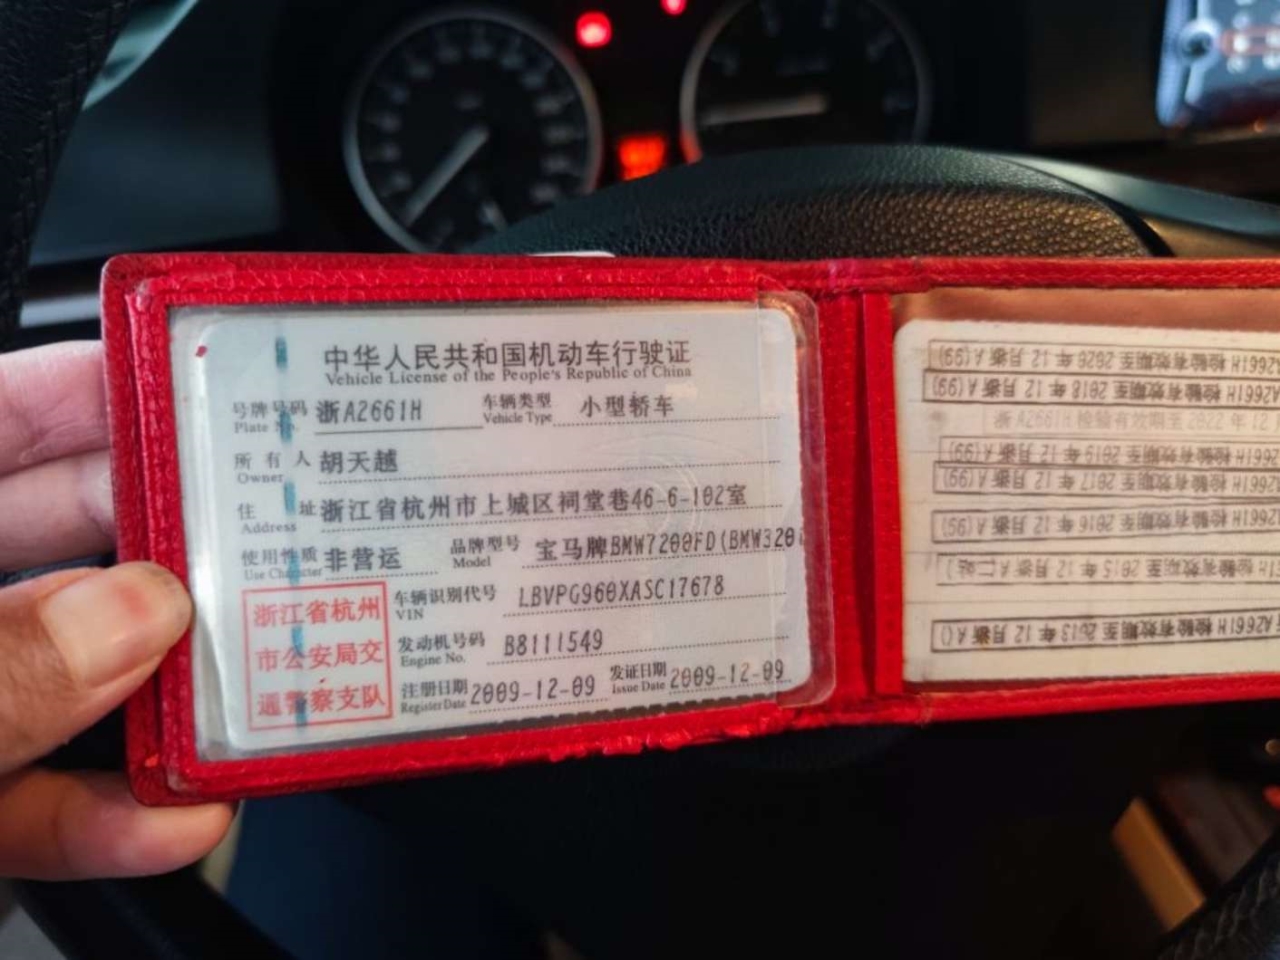 中华人民共和国机动车行驶证
Vehicle License of the People's Republic of China
号牌号码 浙A2661H 车辆类型 小型轿车
Plate No. Vehicle Type
所有人 胡天越
Owner
住址 浙江省杭州市上城区祠堂巷46-6-102室
Address
使用性质 非营运 品牌型号 宝马牌BMW7200FD(BMW320
Use Character Model
浙江省杭州
市公安局交
通警察支队
车辆识别代号 LBVPG960XASC17678
VIN
发动机号码 B8111549
Engine No.
注册日期 2009-12-09 发证日期 2009-12-09
Register Date Issue Date
A2661H 检验有效期至 2020 年 12 月浙 A(99)
A2661H 检验有效期至 2018 年 12 月浙 A(99)
浙 A2661H 检验有效期至 2022 年 12
A2661H 检验有效期至 2019 年 12 月浙 A(99)
2661H 检验有效期至 2017 年 12 月浙 A(99)
2661H 检验有效期至 2016 年 12 月浙 A(95)
1H 检验有效期至 2015 年 12 月浙 A(二站)
A2661H 检验有效期至 2013 年 12 月浙 A()